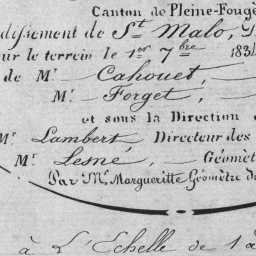 Canton de Pleine-Foug
dissement de St. Malo,
sur le terrein le 1er 7bre 183
de Mr. Cahouet,
Mr. Forget,
et sous la Direction
Mr. Lambert, Directeur des
Mr. Lesné, Géomèt
Par Mr. Margueritte Géomètre d
à L'Echelle de 1 à